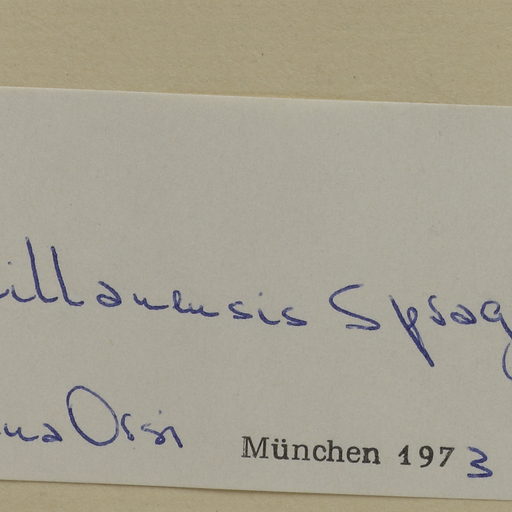 illanensis Sprag
na Ossi München 1973